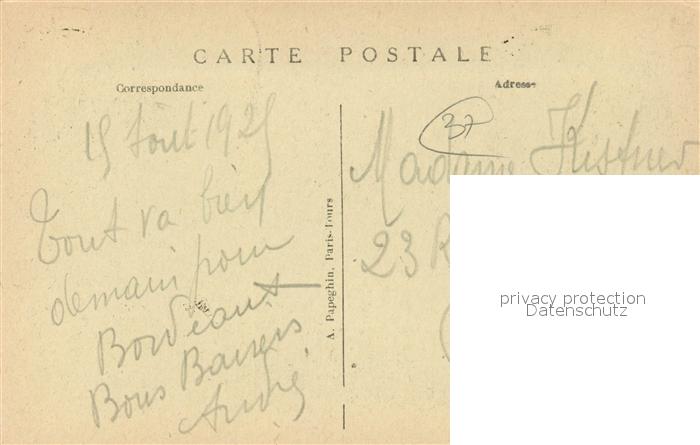 CARTE POSTALE
Correspondance
Adresse
37
15 Août 1925
Tout va bien
demain pour
Bordeaux
Bons Baisers
André
A. Papeghin, Paris-Tours
Madame
23 R
privacy protection
Datenschutz